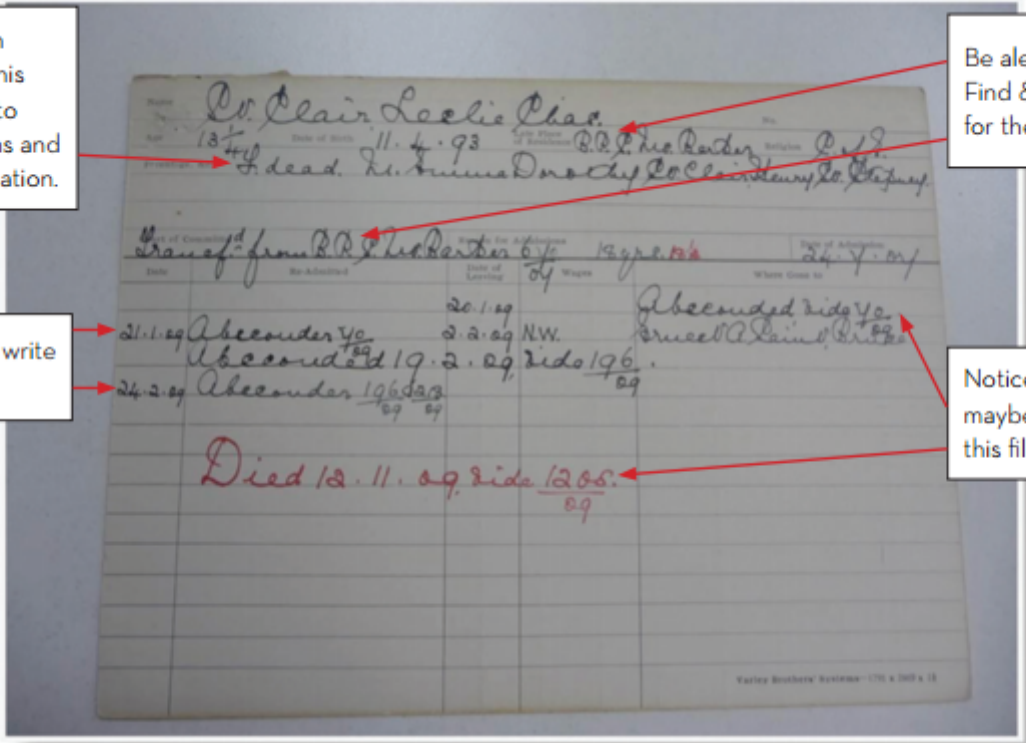 his
to
ns and
ation.
write
Be ale
Find &
for the
Notice
maybe
this fil
Name St. Clair Leslie Chas. No.
Age 13 1/4 Date of Birth 11.4.93 Late Place of Residence B.R.S. Mt. Barker Religion C of E.
F. dead. M. Emma Dorothy St Clair, Henry St. Stepney.
Transf.d from B.R.S. Mt. Barker 6 yo/04 18 yrs. Date of Admission 24.4.04
Date Re-Admitted Date of Leaving Wages Where Gone to
20.1.09 Absconded vide 40/09
21.1.09 Absconder 40/09 2.2.09 N.W. Ernest A
Absconded 19.2.09 vide 196/09.
24.2.09 Absconder 196/09 213/09
Died 12.11.09 vide 1205./09
Varley Brothers' Systems